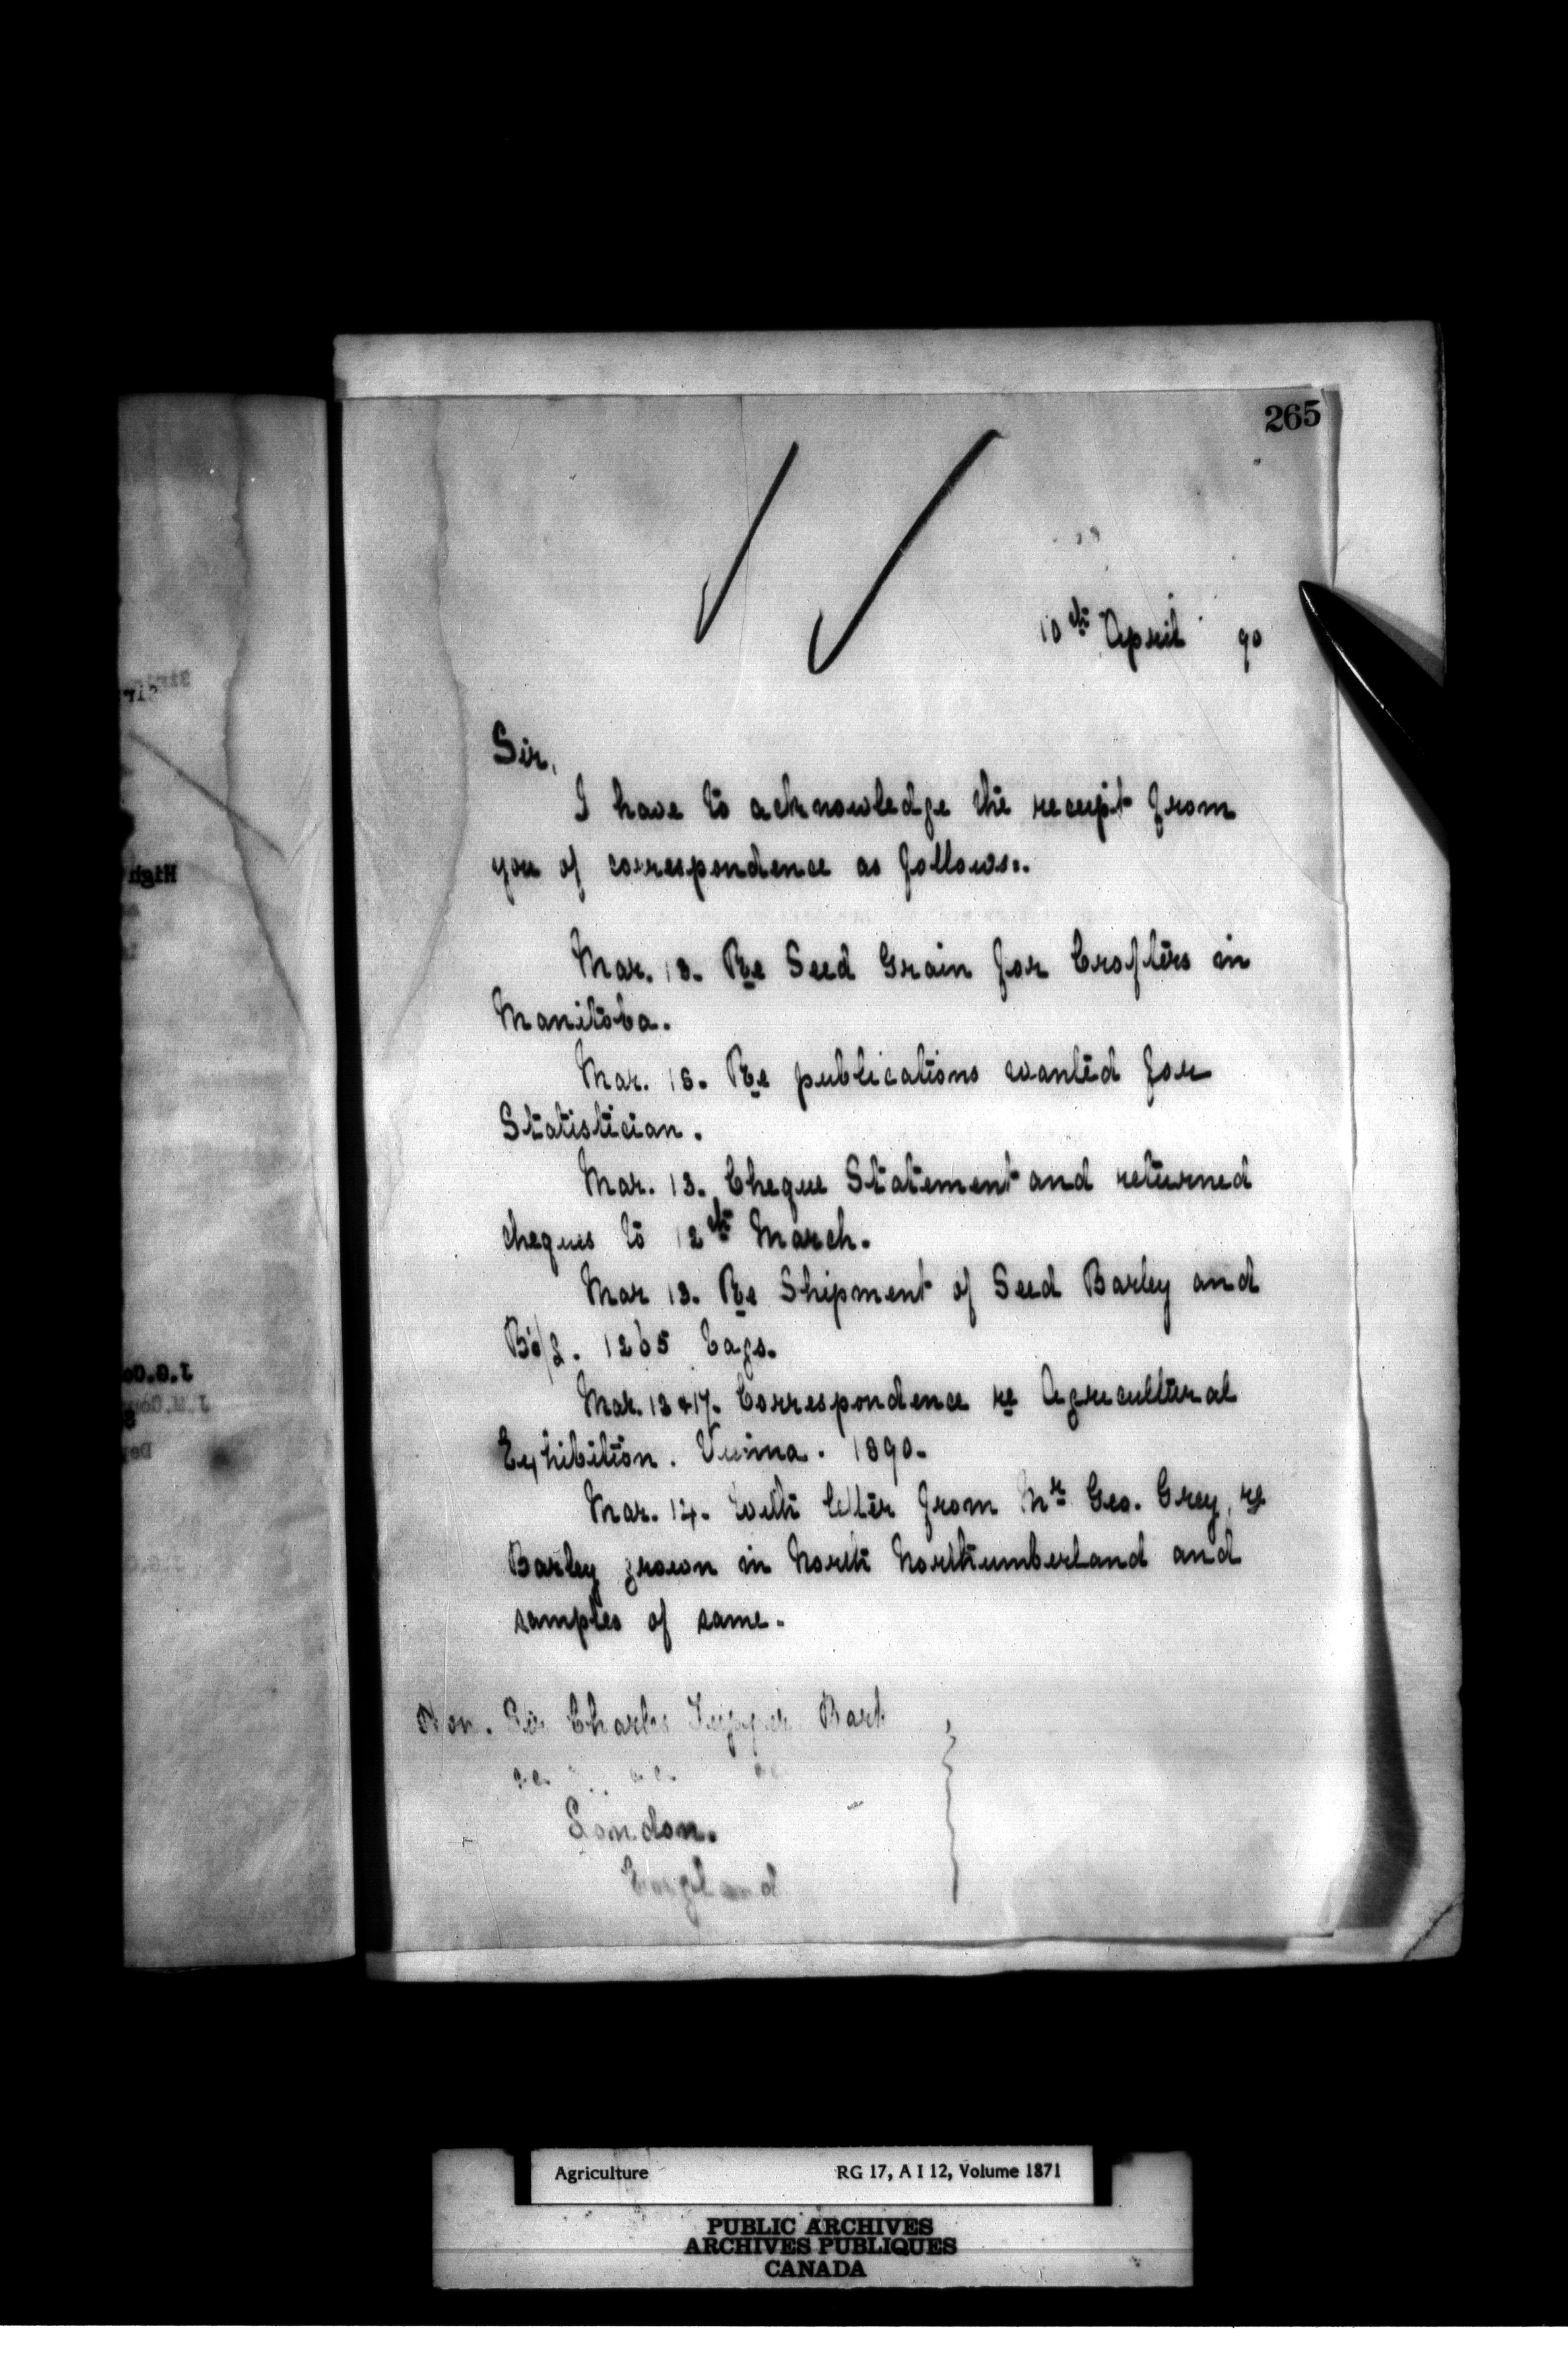 265
10th April 90
Sir,
I have to acknowledge the receipt from
you of correspondence as follows:.
Mar. 13. Re Seed Grain for Crofters in
Manitoba.
Mar. 13. Re publications wanted for
Statistician.
Mar. 13. Cheque Statement and returned
cheques to 12th March.
Mar 13. Re Shipment of Seed Barley and
Bs/L. 1265 bags.
Mar. 13 & 17. Correspondence re Agricultural
Exhibition. Vienna. 1890.
Mar. 14. With letter from Mr Geo. Grey, re
Barley grown in North Northumberland and
samples of same.
Hon. Sir Charles Tupper Bart
London.
England
Agriculture RG 17, A I 12, Volume 1871
PUBLIC ARCHIVES
ARCHIVES PUBLIQUES
CANADA